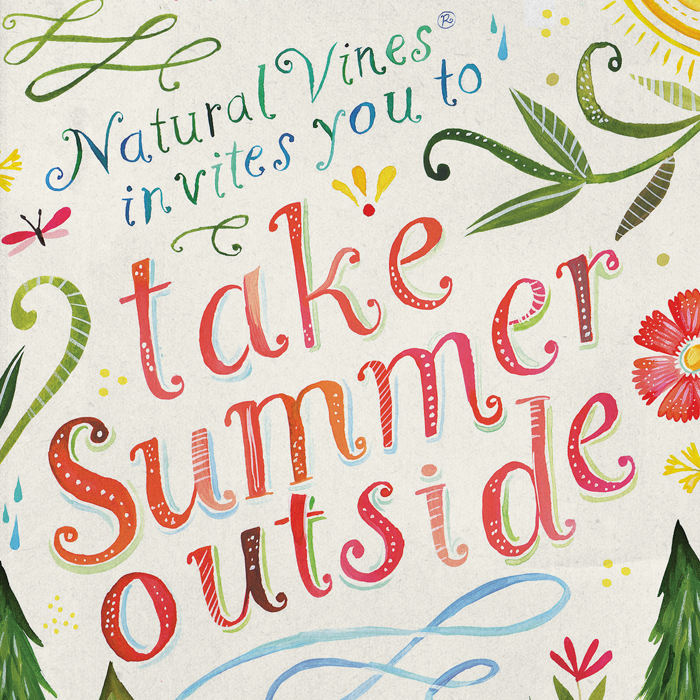 Natural Vines®
invites you to
take
Summer
outside